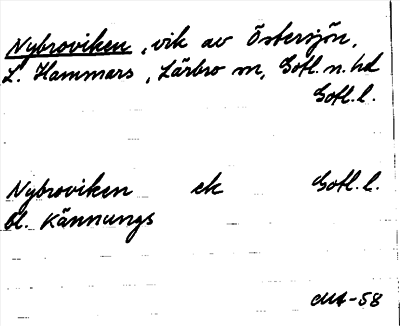 Nybroviken, vik av Östersjön,
L. Hammars, Lärbro sn, Gotl. n. hd
Gotl. l.
Nybroviken ek Gotl. l.
bl. Kännungs
MA-58